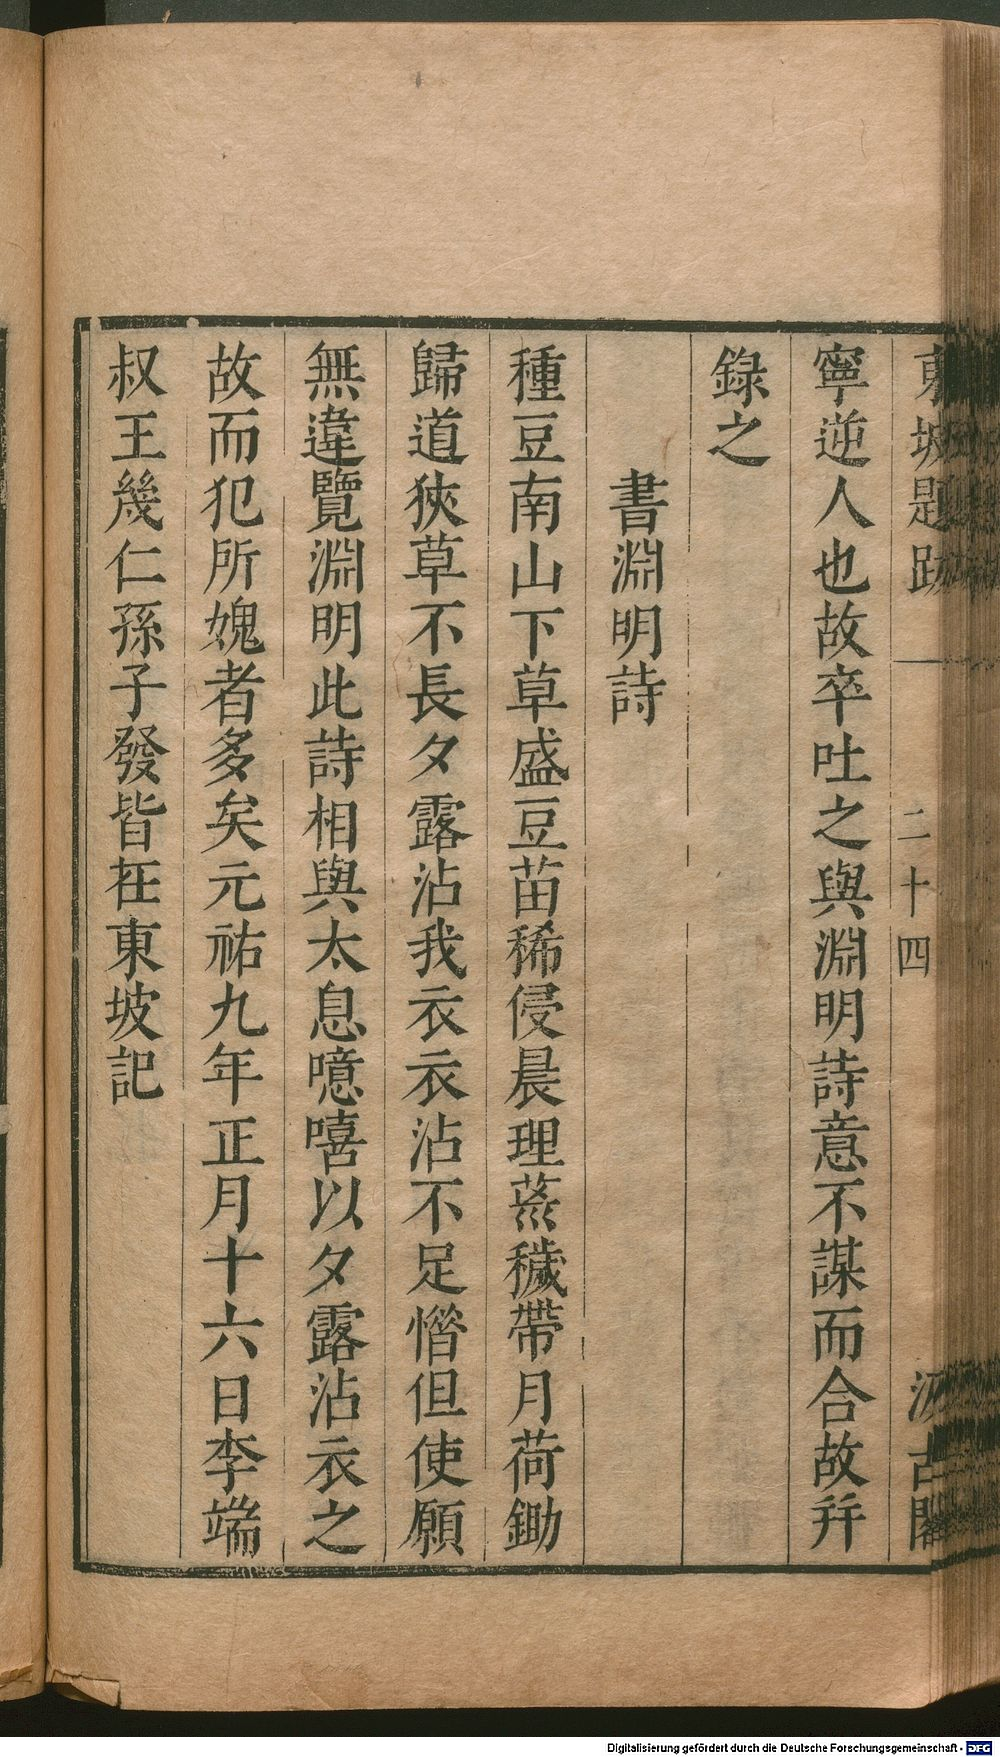 東坡題跋 二十四 汲古閣
寧逆人也故卒吐之與淵明詩意不謀而合故幷
錄之
書淵明詩
種豆南山下草盛豆苗稀侵晨理蒸穢帶月荷鋤
歸道狹草不長夕露沾我衣衣沾不足惜但使願
無違覽淵明此詩相與太息噫嘻以夕露沾衣之
故而犯所媿者多矣元祐九年正月十六日李端
叔王幾仁孫子發皆在東坡記
Digitalisierung gefördert durch die Deutsche Forschungsgemeinschaft - DFG